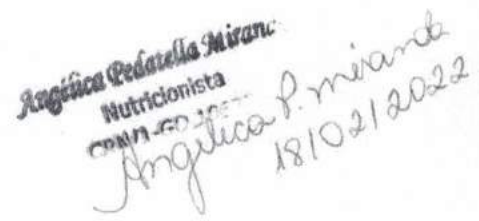 Angélica Pedatella
Nutricionista
Angélica P. miranda
18/02/2022